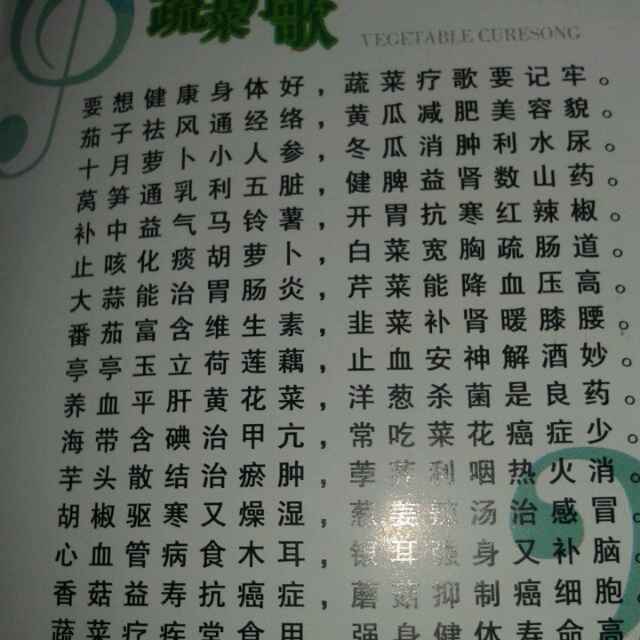 蔬菜疗歌
VEGETABLE CURESONG
要想健康身体好，蔬菜疗歌要记牢。
茄子祛风通经络，黄瓜减肥美容貌。
十月萝卜小人参，冬瓜消肿利水尿。
莴笋通乳利五脏，健脾益肾数山药。
补中益气马铃薯，开胃抗寒红辣椒。
止咳化痰胡萝卜，白菜宽胸疏肠道。
大蒜能治胃肠炎，芹菜能降血压高。
番茄富含维生素，韭菜补肾暖膝腰。
亭亭玉立荷莲藕，止血安神解酒妙。
养血平肝黄花菜，洋葱杀菌是良药。
海带含碘治甲亢，常吃菜花癌症少。
芋头散结治瘀肿，荸荠利咽热火消。
胡椒驱寒又燥湿，葱姜汤治感冒。
心血管病食木耳，银耳强身又补脑。
香菇益寿抗癌症，蘑菇抑制癌细胞。
蔬菜疗疾常食用，强身健体寿命高